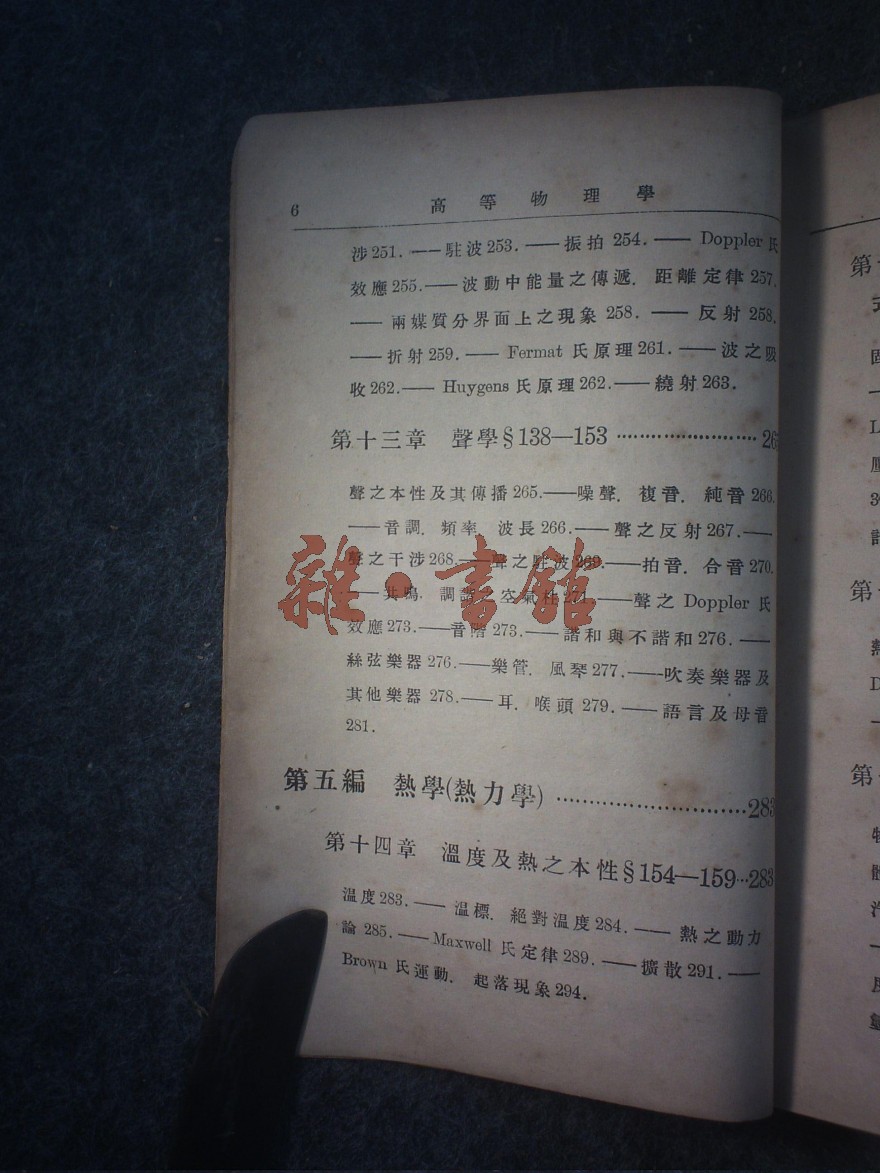 6 高等物理學
涉251.——駐波253.——振拍254.——Doppler氏
效應255.——波動中能量之傳遞．距離定律257.
——兩媒質分界面上之現象258.——反射258.
——折射259.——Fermat氏原理261.——波之吸
收262.——Huygens氏原理262.——繞射263.
第十三章 聲學§138—153························26
聲之本性及其傳播265.——噪聲．複音．純音266.
——音調．頻率 波長266.——聲之反射267.——
聲之干涉268.——聲之駐波269.——拍音．合音270.
——共鳴．調諧 空氣柱271.——聲之Doppler氏
效應273.——音階273.——諧和與不諧和276.——
絲弦樂器276.——樂管．風琴277.——吹奏樂器及
其他樂器278.——耳．喉頭279.——語言及母音
281.
第五編 熱學(熱力學)····························283
第十四章 溫度及熱之本性§154—159···283
溫度283.——溫標．絕對溫度284.——熱之動力
論285.——Maxwell氏定律289.——擴散291.——
Brown氏運動．起落現象294.
雜·書館
第
固
第
熱
第